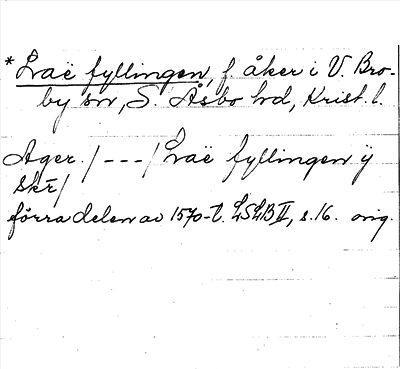 *Lvaë fyllingen, f. åker i V. Bro-
by sn, S. Åsbo hd, Krist. l.
Ager. / - - - / Lvaë fyllingen ÿ
skr̄ /
förra delen av 1570-t. LSLB II, s. 16. orig.